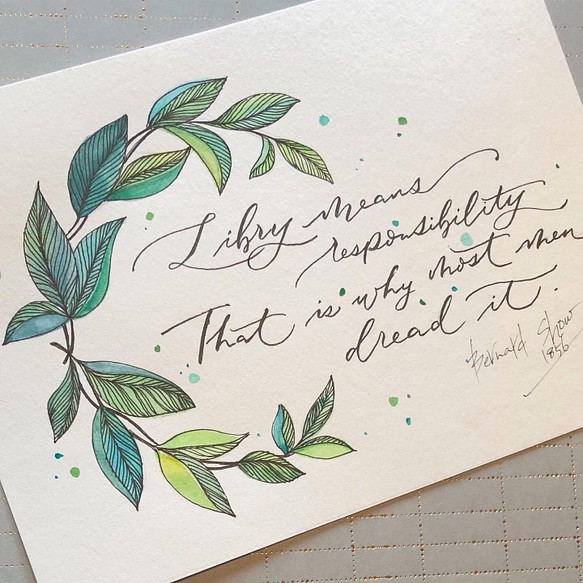 Libry means
responsibility
That is why most men
dread it.
Bernard Show
1856